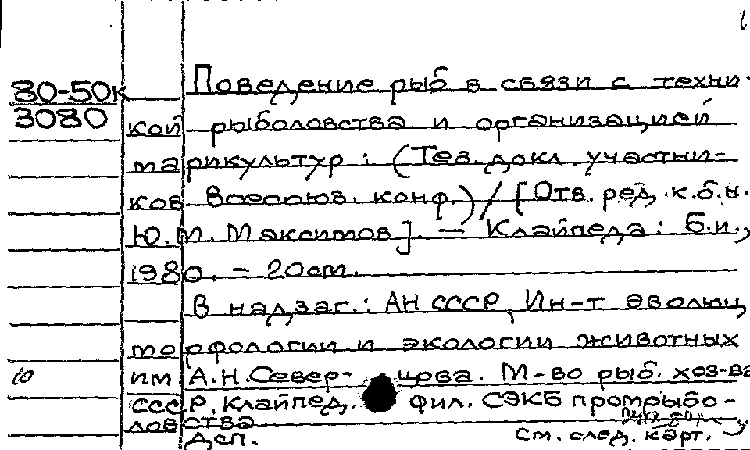 80-50к Поведение рыб в связи с техни-
3080 кой рыболовства и организацией
марикультур: (Тез. докл. участни-
ков Всесоюз. конф.) / [Отв. ред. к.б.н.
Ю.М. Максимов]. – Клайпеда: б.и.,
1980. – 20 cm.
В надзаг.: АН СССР, Ин-т эволюц
морфологии и экологии животных
10 им А.Н. Север- цова. М-во рыб. хоз-ва
СССР, Клайпед. фил. СЭКБ промрыбо-
ловства
Дсп. См. след. карт.